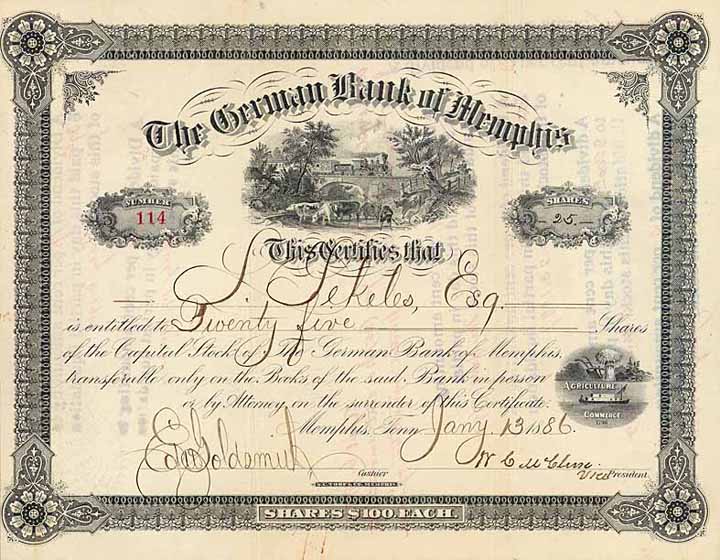 The German Bank of Memphis
NUMBER
114
SHARES
25
This Certifies that
S. Fekeles, Esq.
is entitled to Twenty five Shares
of the Capital Stock of The German Bank of Memphis,
transferable only on the Books of the said Bank in person
or by Attorney on the surrender of this Certificate.
AGRICULTURE
COMMERCE
Memphis, Tenn Jany. 13 1886.
Ed Goldsmith
Cashier
W C McClure
Vice President.
SHARES $100. EACH.